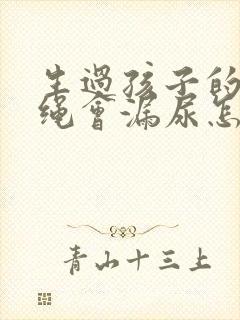 生過孩子的
繩會漏尿怎
青山十三上